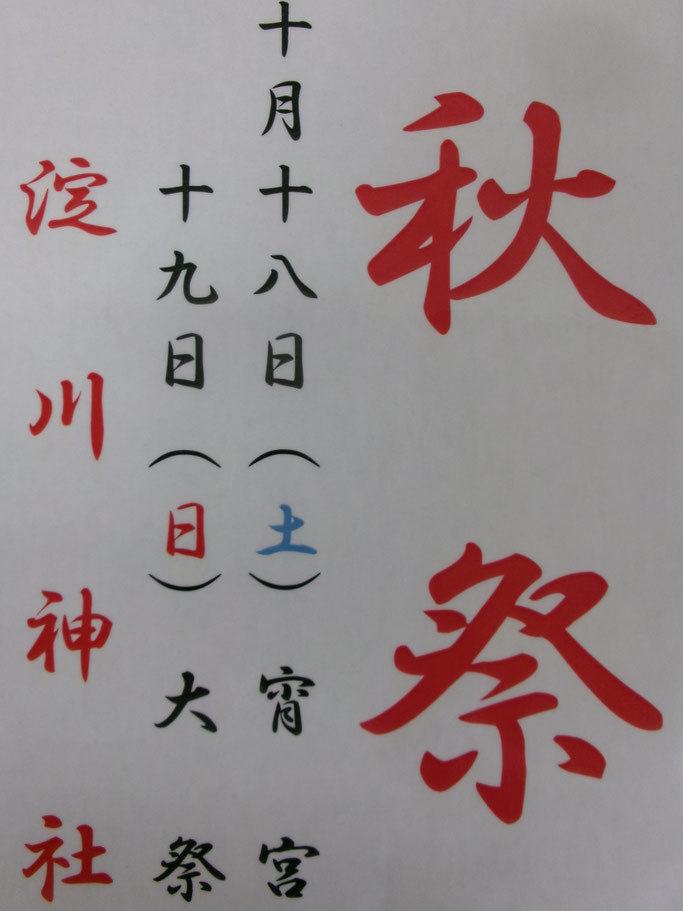 秋祭
十月十八日（土）宵宮
十九日（日）大祭
淀川神社